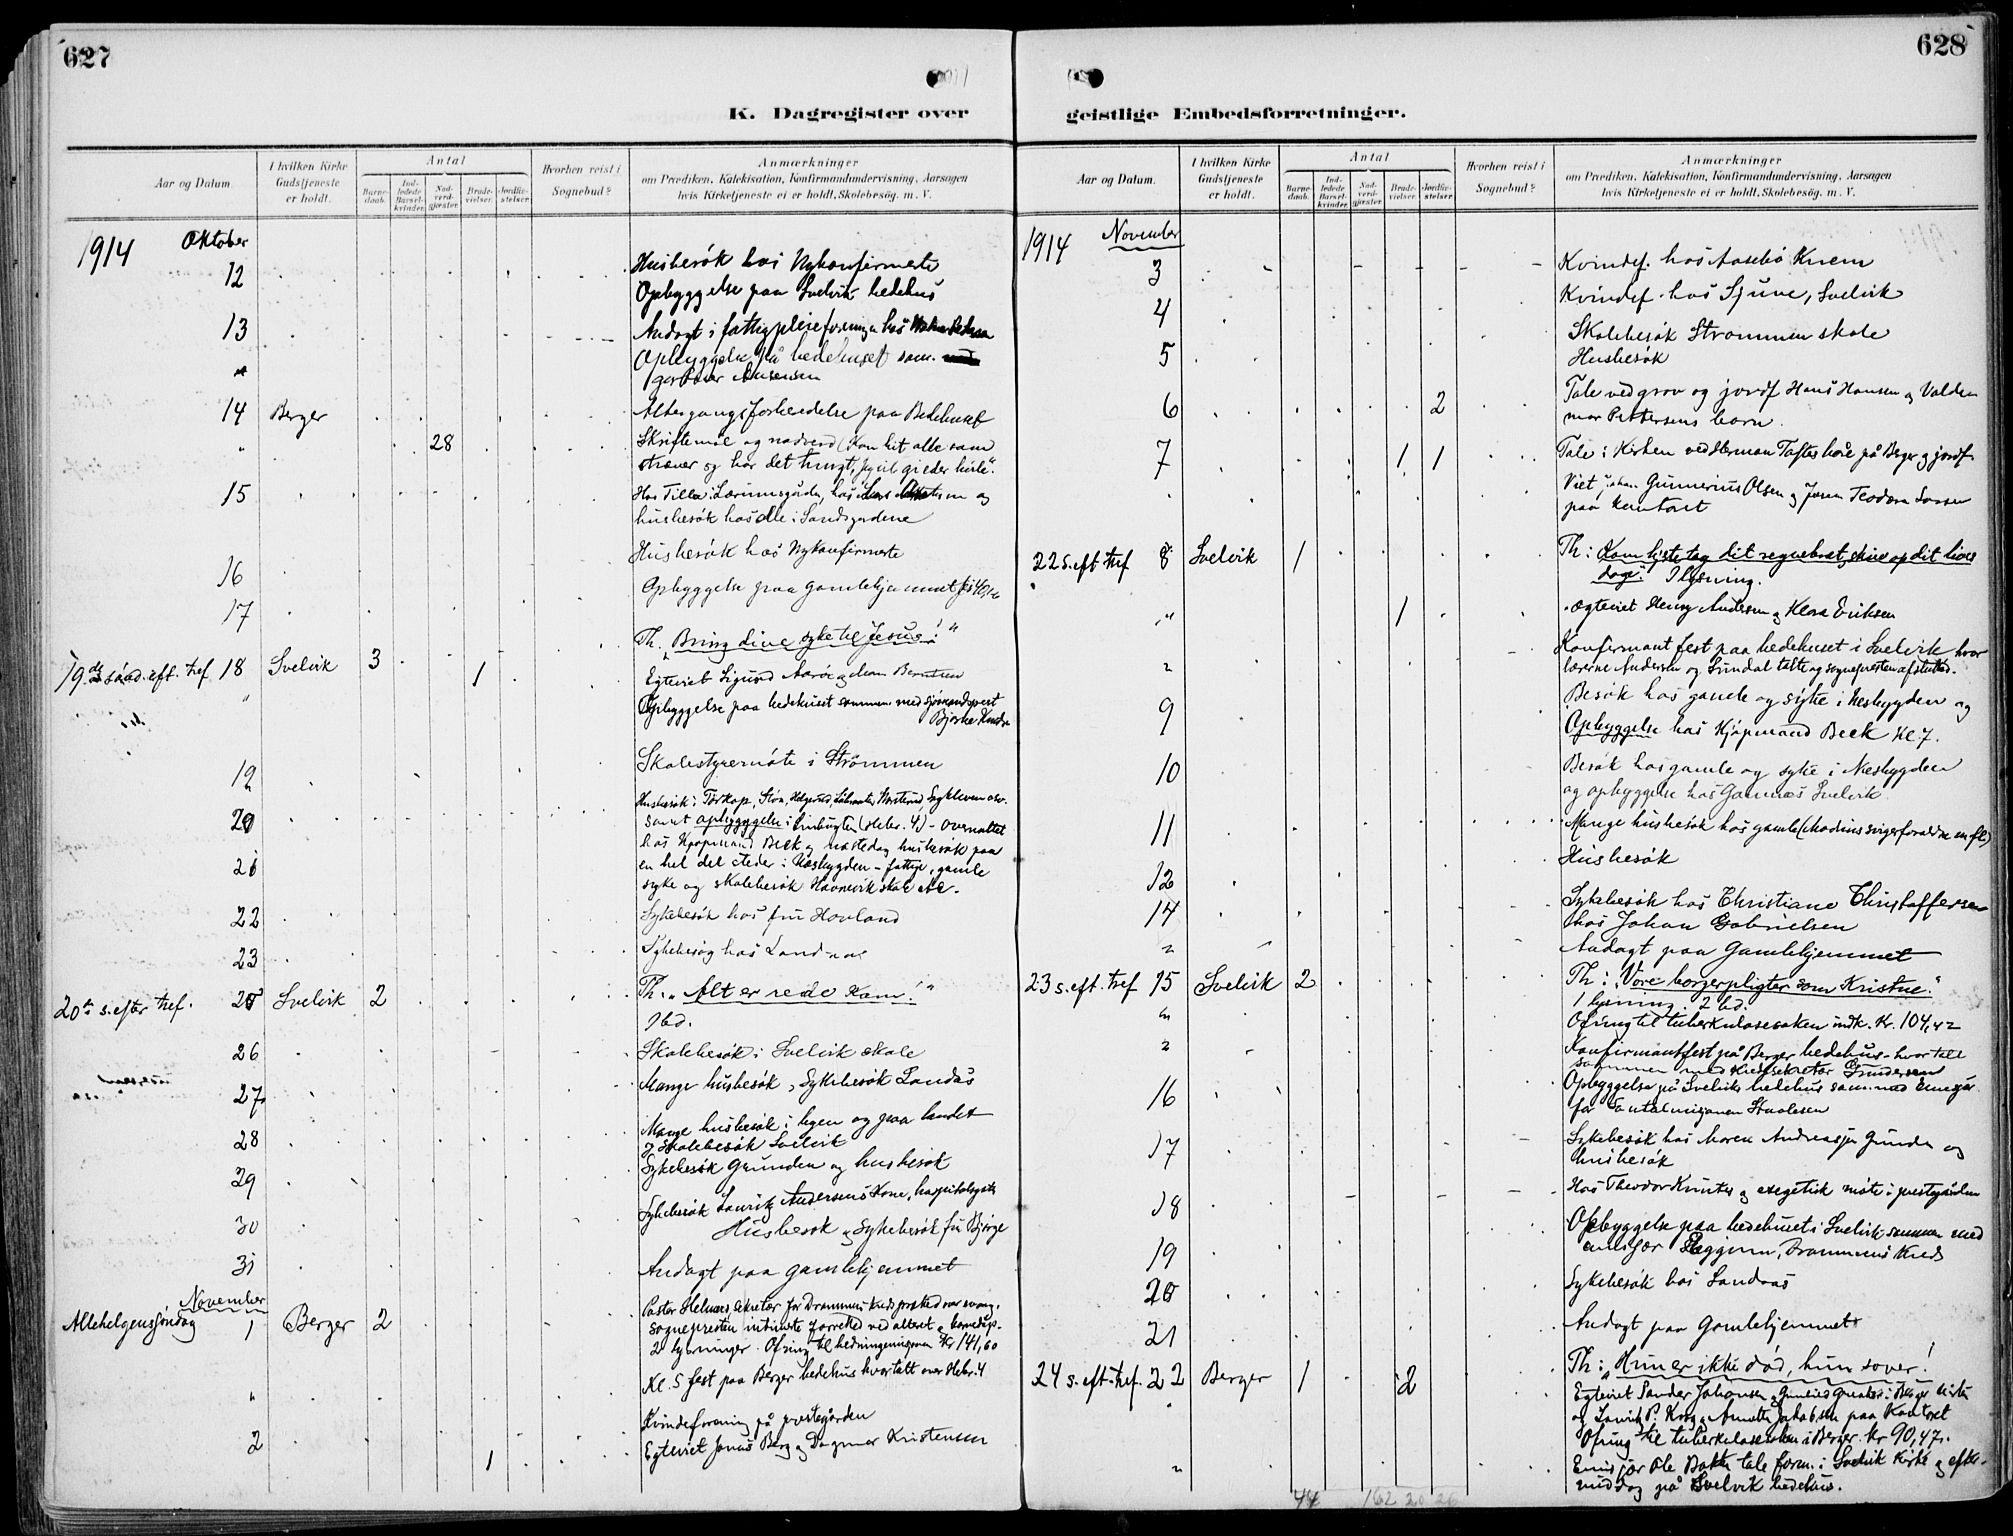 627
K. Dagregister over
Aar og Datum.
I hvilken Kirke
Gudstjeneste
er holdt.
Antal
Barne-
daab.
Ind-
ledede
Barsel-
kvinder.
Nad-
verd-
gjæster.
Brude-
vielser.
Jordfæ-
stelser.
Hvorhen reist i
Sognebud?
Anmærkninger
om Prædiken, Katekisation, Konfirmandundervisning, Aarsagen
hvis Kirketjeneste ei er holdt, Skolebesög, m. V.
1914 Oktober
12 Husbesøk hos Nykonfirmerte
Opbyggelse paa Svelvik bedehus
13 Andagt i fattigpleieforeninga hos
Opbyggelse på bedehuset sam.
14 Berger Altergangsforberedelse paa Bedehuset
" 28 Skriftemål og nadverd (Kom hit alle som
stræver og har det tungt, jeg vil gi eder hvile".
15 Hos Tilla i Lærumsgården, hos Lars og
husbesøk hos alle i Sandsgardene
Husbesøk hos Nykonfirmerte
16
Opbyggelse paa Gamlehjemmet
17
Th. "Bring dine syke til Jesus!"
19de sönd. eft. tref. 18 Svelvik 3
1 Egteviet Sigurd
" Opbyggelse paa bedehuset sammen med sjömandsprest
Bjarke Knudsen
Skolestyremöte i Strömmen
19
Husbesøk i Tørkop, Støa,
20 samt opbyggelse i (Hebr. 4) - Overnattet
hos Kjøpmand Beck og næste dag husbesøk paa
21 en hel del steder i Næsbygden - fattige, gamle
syke og skolebesøk Havnevik skole
22 Sykebesøk hos fru Hovland
23 Sykebesøg hos Landaas
20de s. efter tref. 25 Svelvik 2 Th. "Alt er rede Kom!"
1 bd.
26 Skolebesøk i Svelvik skole
27 Mange husbesøk, Sykebesøk Landås
28 Mange husbesøk i byen og paa landet
og Skolebesøk Svelvik
29 Sykebesøk Grunden og husbesøk
30 Sykebesøk Laurits Andersens Kone,
Husbesøk og Sykebesøk fru Bjørge
31 Andagt paa gamlehjemmet
November
Allehelgensjöndag 1 Berger 2 Pastor sekretær for Drammens Kreds præked over evang.
Sognepresten intimerte forrettet ved alteret og barnedåp.
2 lysninger. Ofring til hedningemissionen Kr 141,60
" Kl. 5 fest paa Berger bedehus hvor talt over Hebr. 4
2 Kvindeforening på prestegården
1 Egteviet Jonas Berg og Dagmar Kristensen
628
geistlige Embedsforretninger.
Aar og Datum.
I hvilken Kirke
Gudstjeneste
er holdt.
Antal
Barne-
daab.
Ind-
ledede
Barsel-
kvinder.
Nad-
verd-
gjæster.
Brude-
vielser.
Jordfæ-
stelser.
Hvorhen reist i
Sognebud?
Anmærkninger
om Prædiken, Katekisation, Konfirmandundervisning, Aarsagen
hvis Kirketjeneste ei er holdt, Skolebesög, m. V.
1914 November
3 Kvindef. hos Aasebö Knem
4 Kvindef. hos Sjuve, Svelvik
Skolebesøk Strømmen skole
5 Husbesøk
6 2 Tale ved grav og jordf. Hans Hansen og Valde-
mar Pettersens barn.
7 1 1 Tale i Kirken ved Herman Toftes båre på Berger og jordf.
" Viet Johan Gunnerius Olsen og
paa Kontoret
22 s. eft tref 8 Svelvik 1 Th: Kom hjerte tag dit regnebræt, skriv op dit livs
dage". 1 lysning.
" 1 Egteviet Henry Andersen og Klara Eriksen
" Konfirmant fest paa bedehuset i Svelvik hvor
lærerne Andersen og Sundal talte og sognepresten afsluttet.
9 Besøk hos gamle og syke i Næsbygden og
Opbyggelse hos Kjøpmand Beck Kl. 7.
10 Besøk hos gamle og syke i Næsbygden
og opbyggelse hos Svelvik
11 Mange husbesøk hos gamle svigerforældre m fl)
12 Husbesøk
14 Sykebesøk hos Christiane Christoffersen
hos Johan Gabrielsen
" Andagt paa Gamlehjemmet
23 s. eft. tref 15 Svelvik 2 Th: "Vore borgerpligter som Kristne".
1 lysning. 2 bd.
" Ofring til tuberkulosesaken indk. Kr. 104,42
" Konfirmantfest på Berger bedehus - hvor talt
sammen med Kredssekretær Gundersen
16 Opbyggelse på Svelvik bedehus sam. med Emisjær
for Santalmisjonen
17 Sykebesøk hos Maren Andreasja Grunden og
husbesøk
18 Hos Theodor Knutsen og exegetisk møte i prestegården
19 Opbyggelse paa bedehuset i Svelvik sammen med
emisjær Drammens Kreds
20 Sykebesøk hos Landaas
21 Andagt paa Gamlehjemmet
24 s. eft. tref. 22 Berger 1 2 Th: "Hun er ikke død, hun sover!
" Egteviet Sander Johansen i Berger kirke
og paa Kontoret
Ofring til tuberkulosesaken i Berger Kr 90,47.
" Emisjær Ole Bakke tale form. i Svelvik Kirke og efter-
middag på Svelvik bedehus.
44 162 20 26